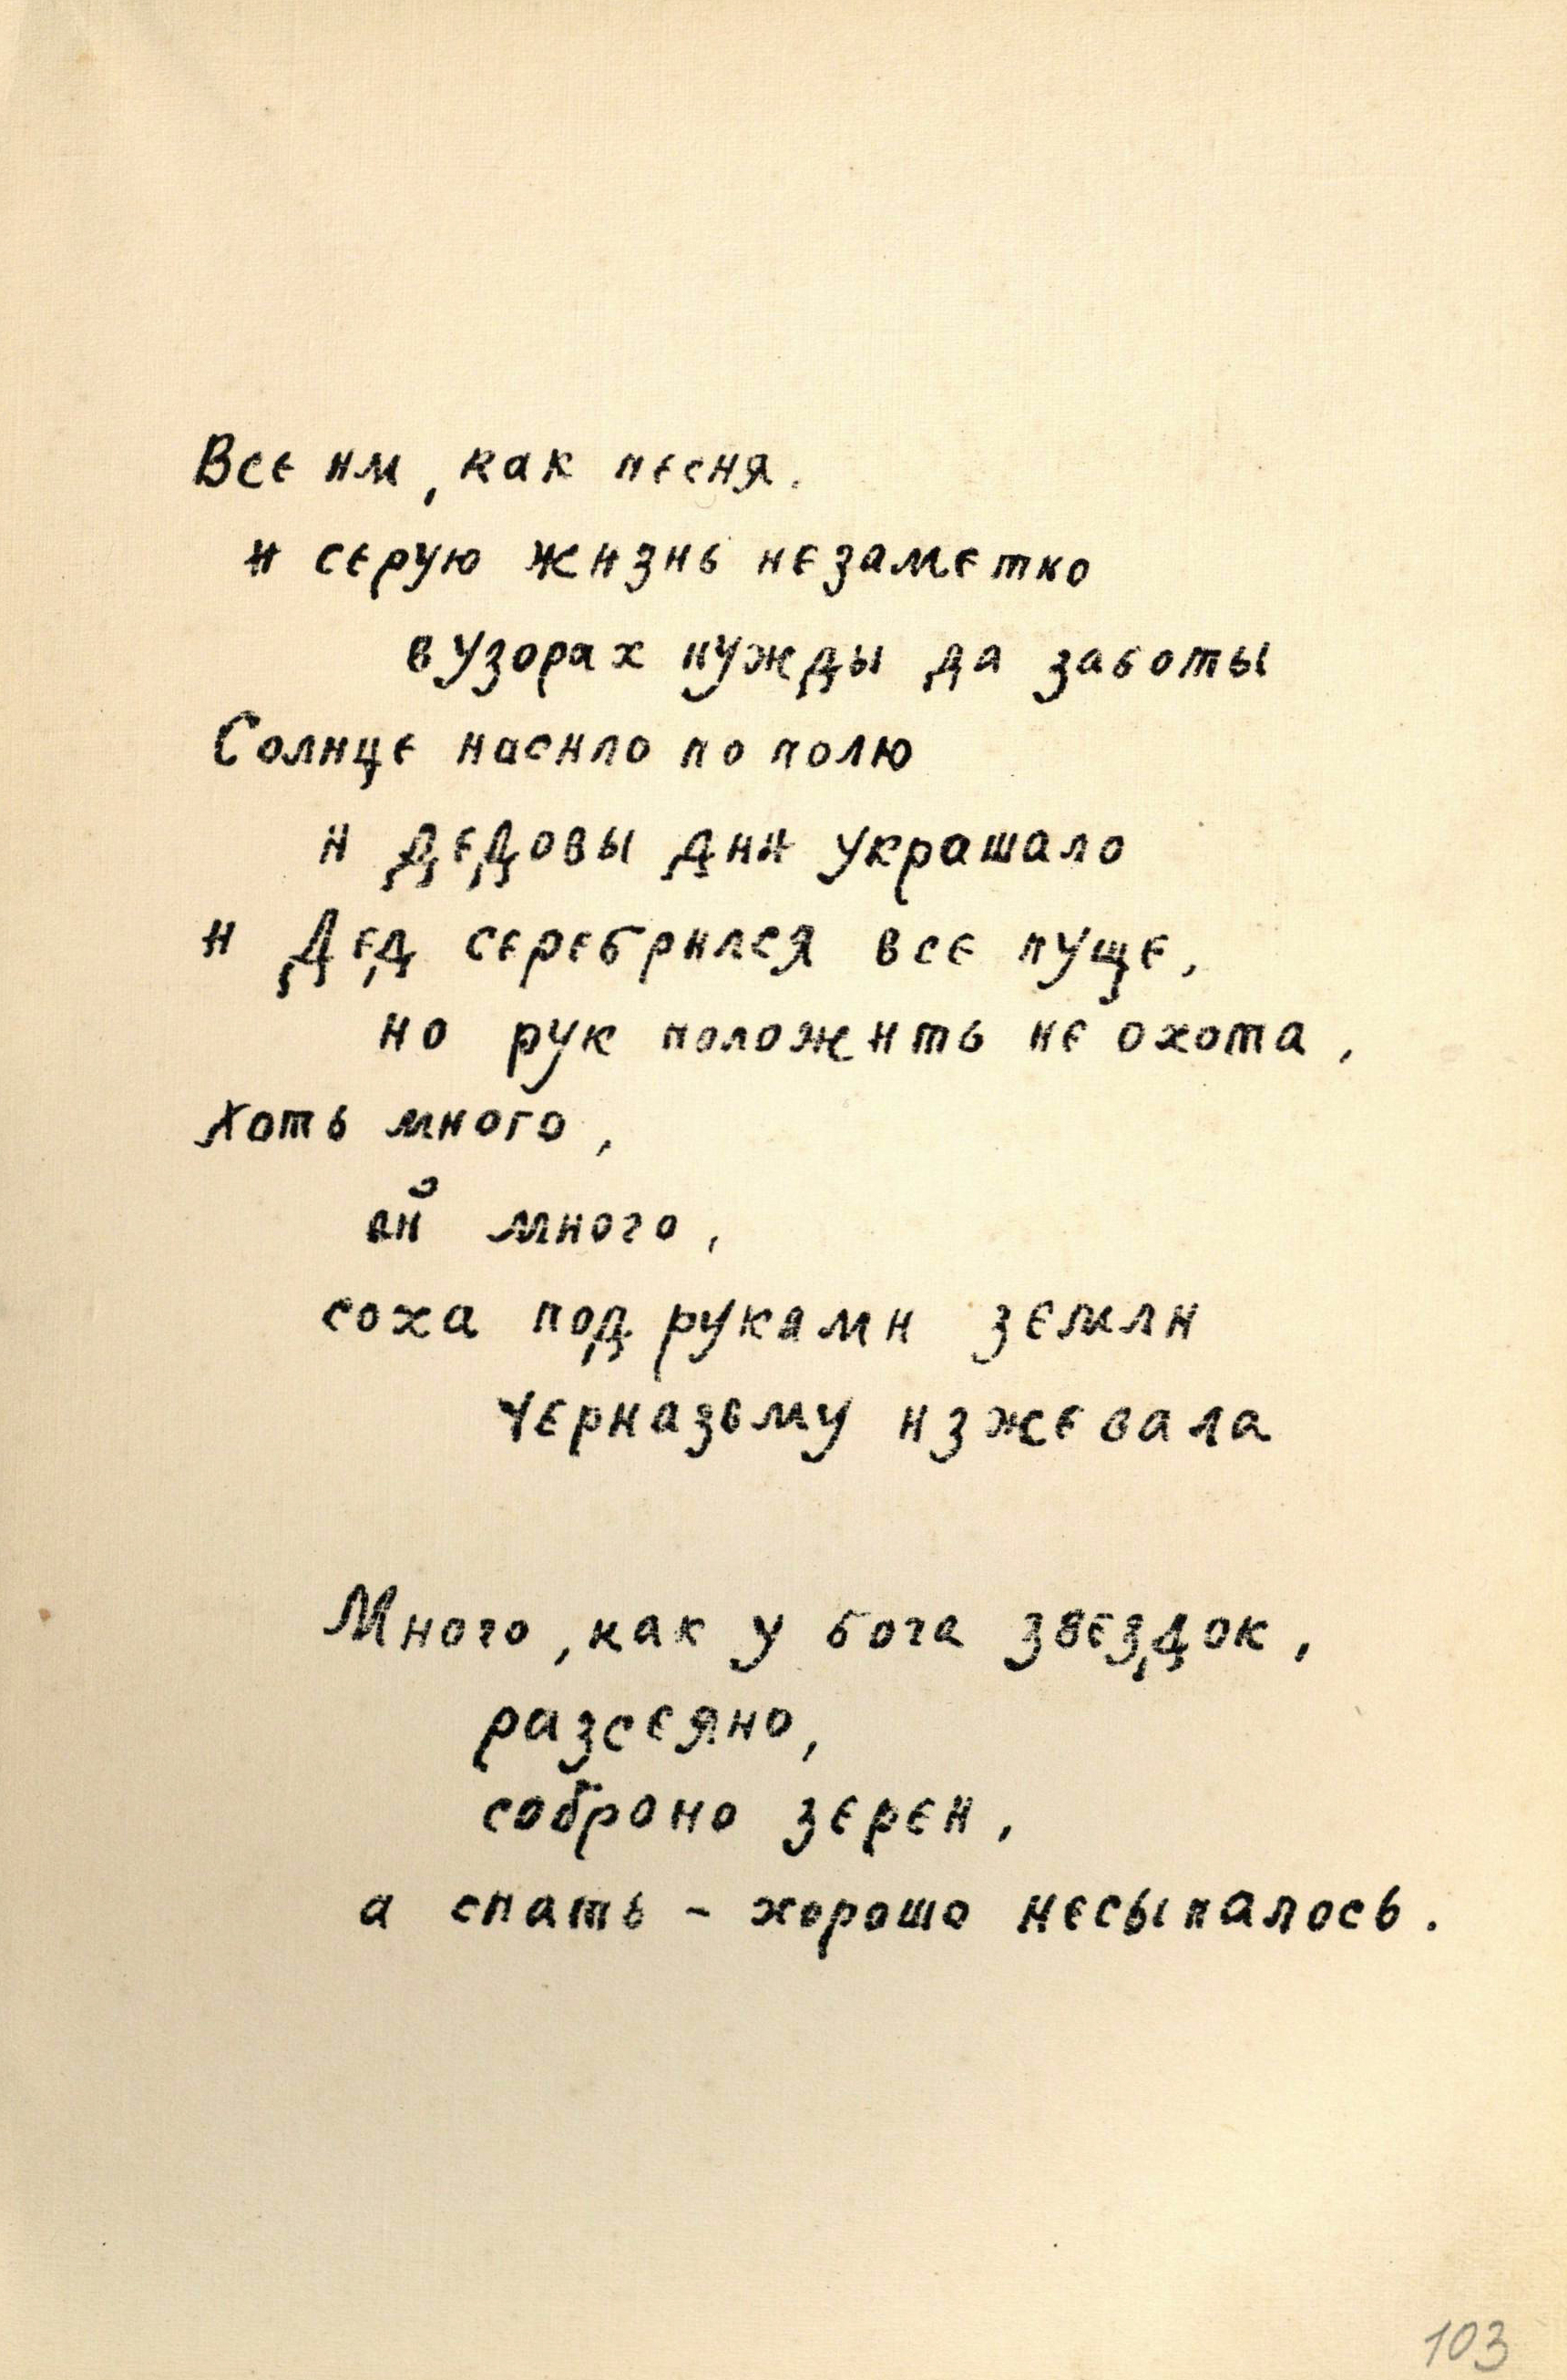 Все им, как песня.
и серую жизнь незаметко
в узорах нужды да заботы
Солнце насило по полю
и дедовы дни украшало
и Дед серебрился все пуще,
но рук положить не охота,
хоть много,
ай много,
соха под руками земли
черназему изжевала
Много, как у бога звездок,
разсеяно,
соброно зерен,
а спать - хорошо несыпалось.
103